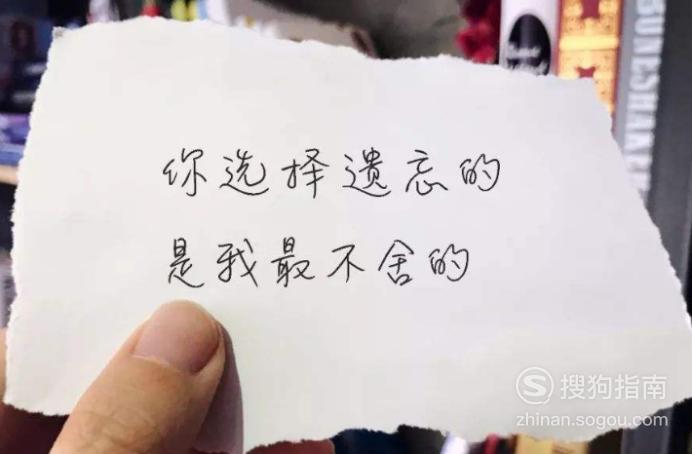 你选择遗忘的
是我最不舍的
搜狗指南
zhinan.sogou.com